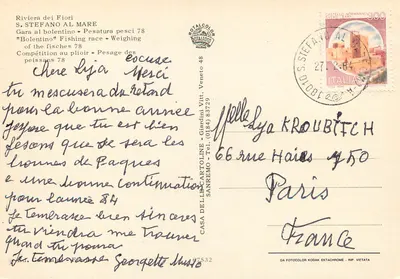 Riviera dei Fiori
S. STEFANO AL MARE
Gara al bolentino - Pesatura pesci 78
"Bolentino" Fishing race - Weighing
of the fisches 78
Compétition au plioir - Pesage des
poissons 78
excuse
Chere Lyja Merci
tu m'escusera du retard
pour la bonne année
j'espere que tu est bien
fesons que se sera les
bonnes de Paques
e une bonne continuation
pour l'année 84
Je t'embrasse bien sinceres
tu viendra me trouver
quand tu poura
Je t'embrasse Georgette
CASA DELLE CARTOLINE - Giardini Vitt. Veneto 48
SANREMO - Tel. (0184) 85729
S. STEFANO AL
18010
ITALIA
Melle Lya KROUBITCH
66 rue Haies 750
Paris
France
DA FOTOCOLOR KODAK EKTACHROME - RIP. VIETATA